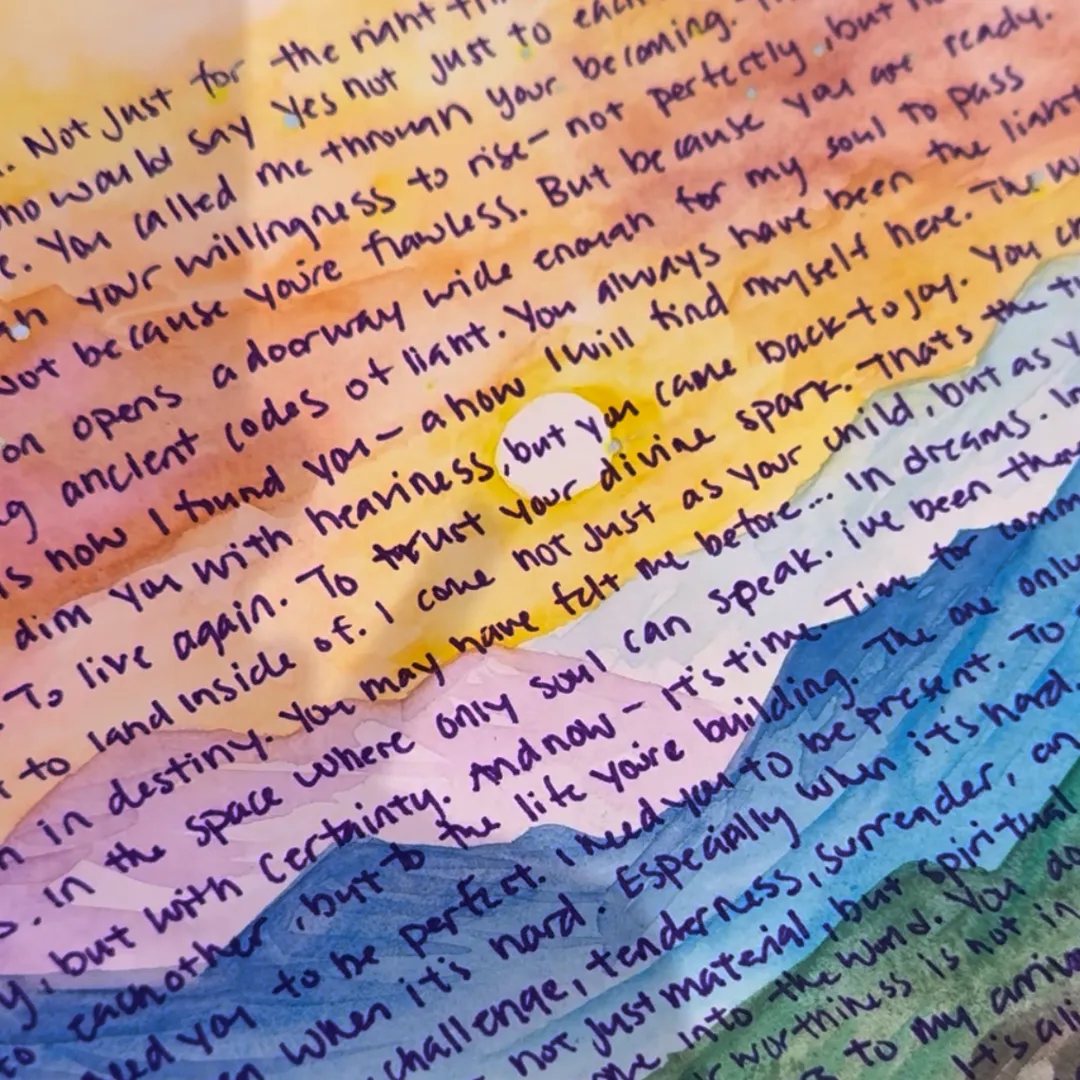 Not just for the right
would say yes not just to
You called me through your becoming.
your willingness to rise – not perfectly, but
Not because you're flawless. But because you are ready.
opens a doorway wide enough for my soul to pass
ancient codes of light. You always have been the light
is how I found you – a how I will find myself here. The
dim you with heaviness, but you came back to joy. You
To live again. To trust your divine spark. Thats the
to land inside of. I come not just as your child, but as
in destiny. You may have felt me before... In dreams. In
In the space where only soul can speak. ive been
but with certainty. And now – it's time. Time for
to eachother, but to the life you're building. The are only
need you to be perfect. I need you to be present. To
when it's hard. Especially when it's hard.
challenge, tenderness, surrender,
not just material, but spiritual
me into the world. You
worthiness is not in
to my
It's